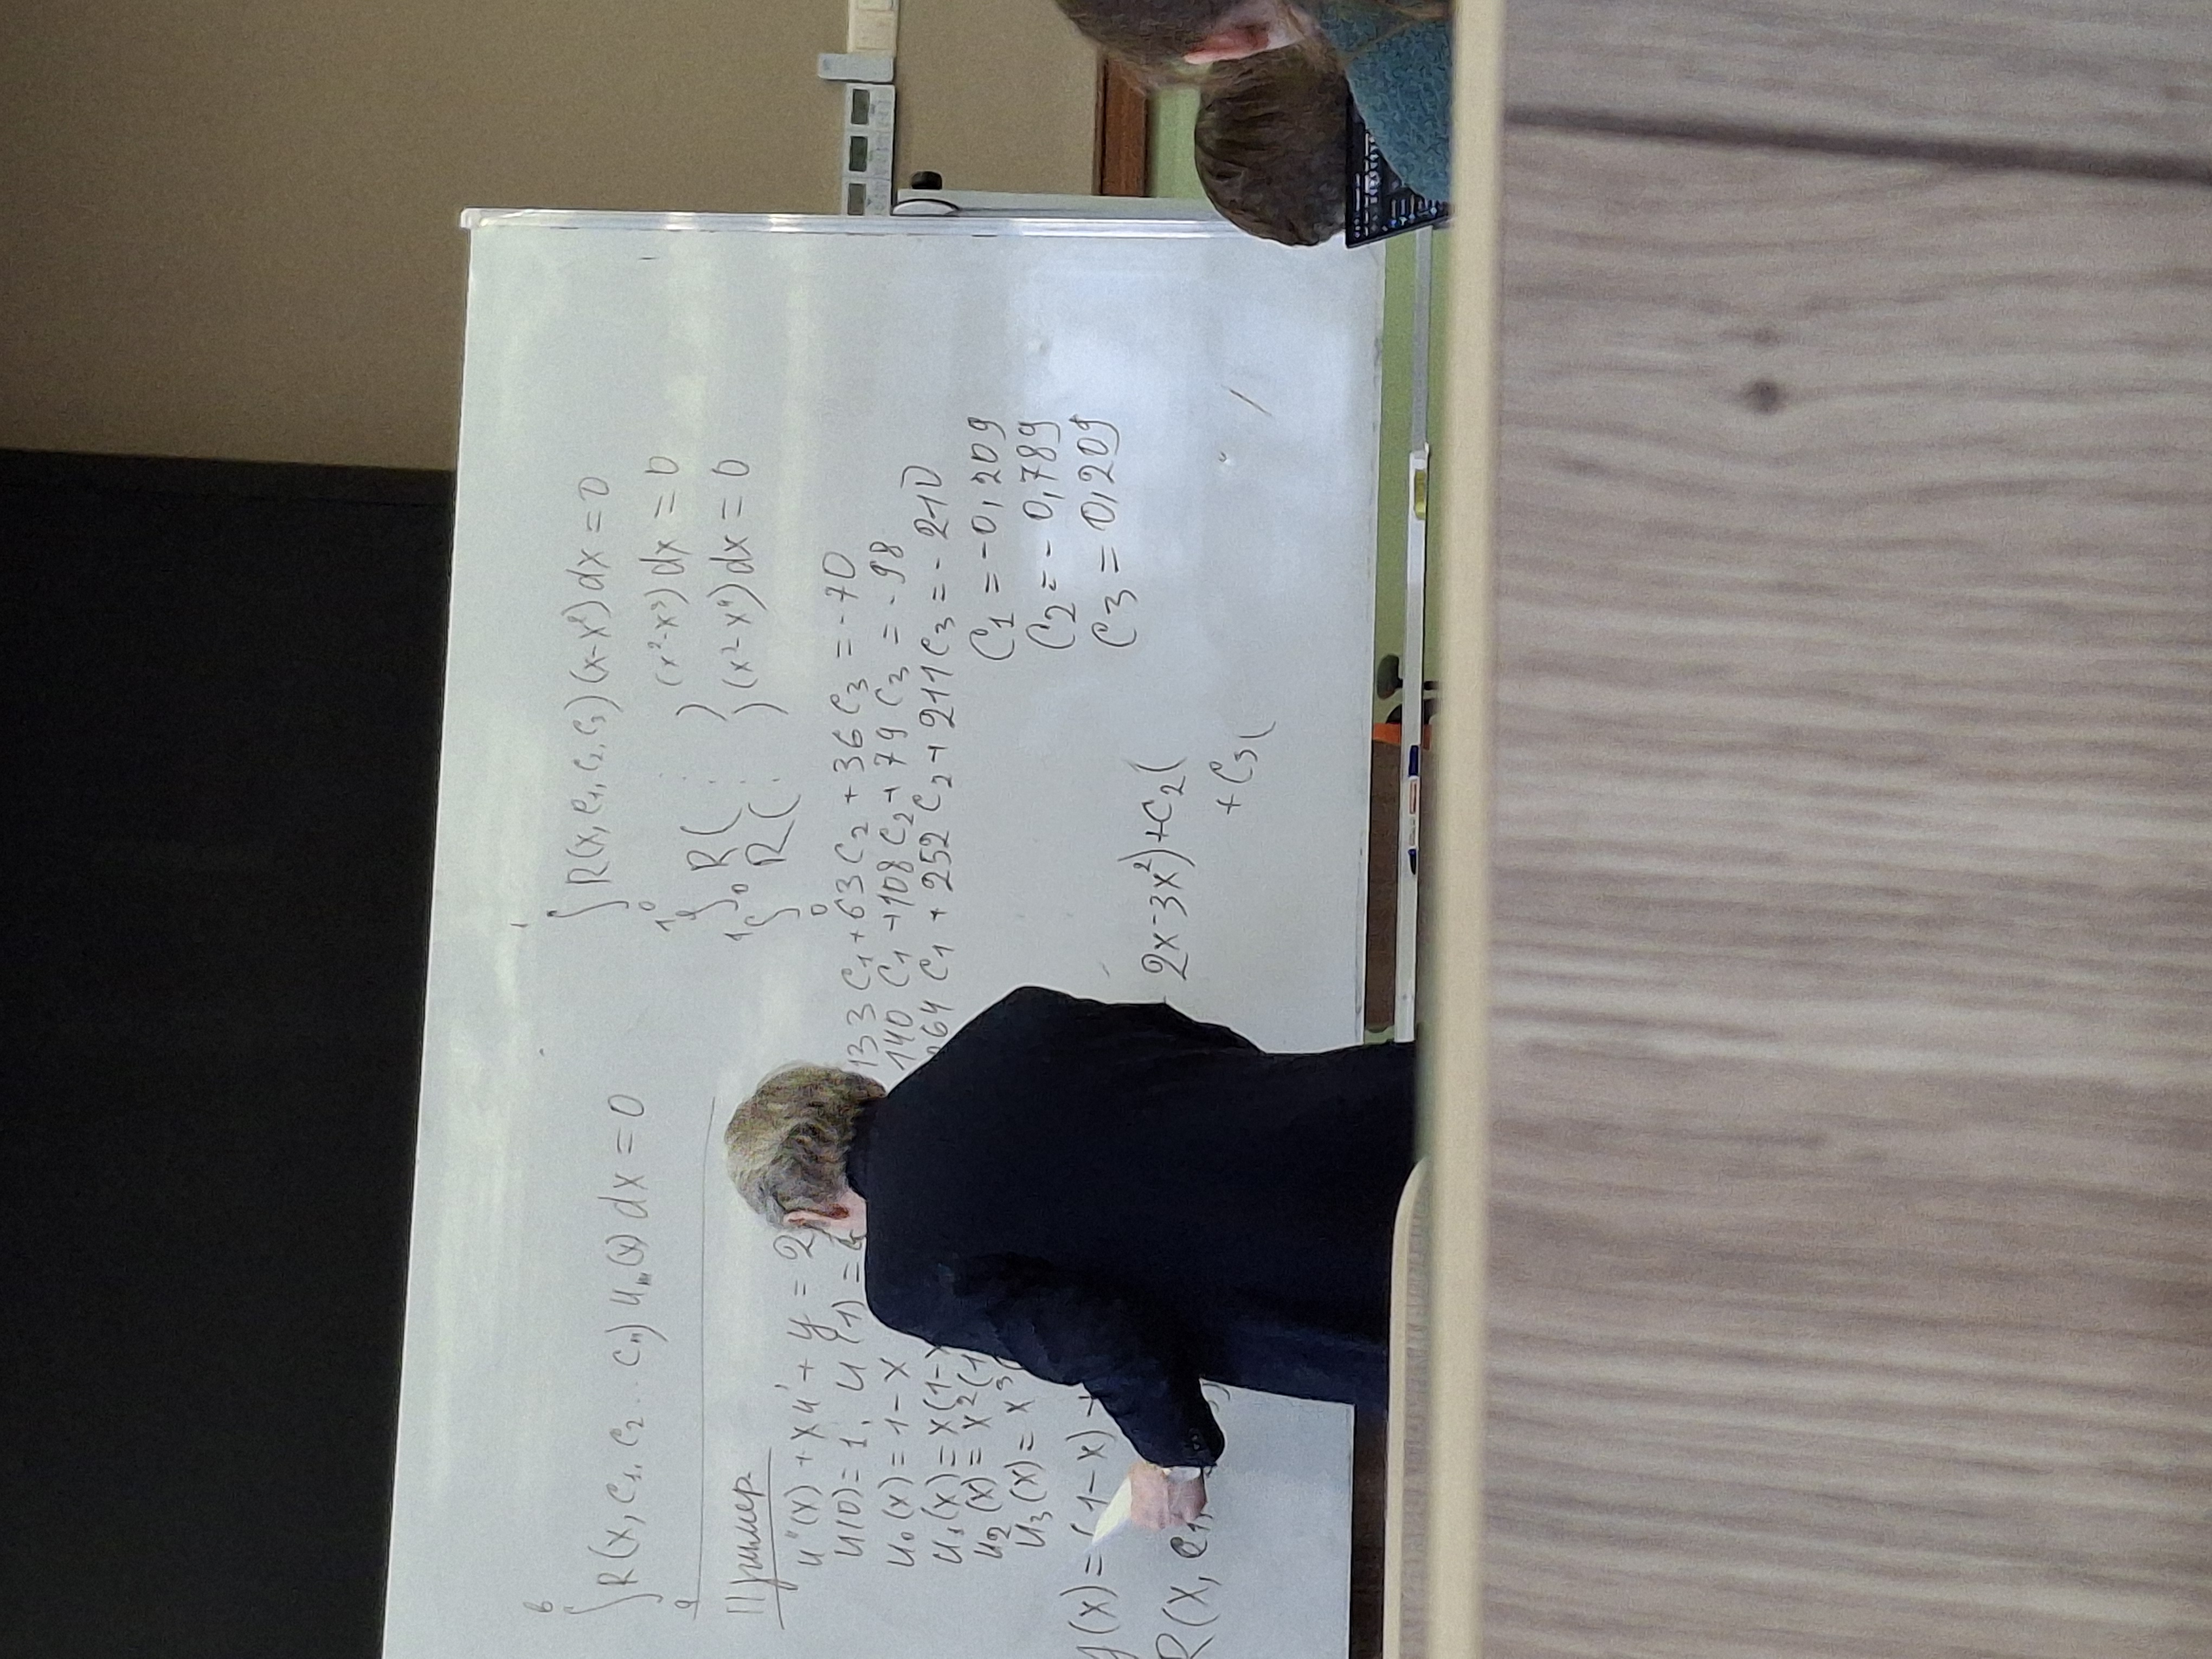 b
∫ R(x, C₁, C₂ .. Cₙ) uₙ(x) dx = 0
a
Пример
u''(x) + xu' + y = 2
u(0) = 1, u(1) =
u₀(x) = 1 - x
u₁(x) = x(1-x
u₂(x) = x²(1
u₃(x) = x³(
y(x) = (1-x) +
R(x, C₁,
2x-3x²) + C₂(
+ C₃(
1
∫ R(x, C₁, C₂, C₃) (x-x²) dx = 0
0
1
∫ R( ⋮ ) (x²-x³) dx = 0
0
1
∫ R( ⋮ ) (x²-x⁴) dx = 0
0
133 C₁ + 63 C₂ + 36 C₃ = -70
140 C₁ + 108 C₂ + 79 C₃ = -98
264 C₁ + 252 C₂ + 211 C₃ = -210
C₁ = -0,209
C₂ = -0,789
C₃ = 0,209